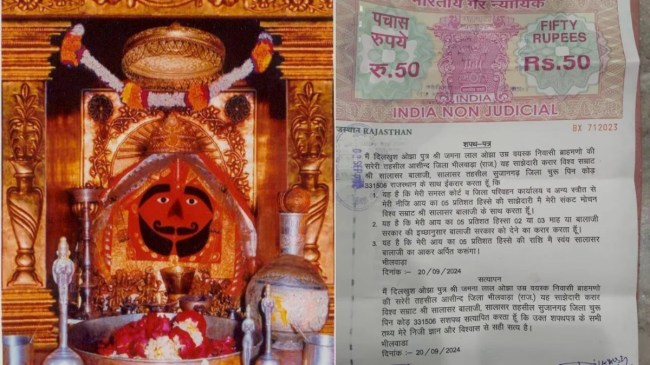 भारतीय गैर न्यायिक
पचास
रुपये
रु.50
FIFTY
RUPEES
Rs.50
INDIA
INDIA NON JUDICIAL
RAJASTHAN
BX 712023
शपथ-पत्र
मैं दिलखुश ओझा पुत्र श्री जमना लाल ओझा उम्र वयस्क निवासी ब्राहमणो की
सरेरी तहसील आसीन्द जिला भीलवाड़ा (राज.) यह साझेदारी करार विश्व सम्राट
श्री सालासर बालाजी, सालासर तहसील सुजानगढ़ जिला चुरू पिन कोड़
331506 राजस्थान के साथ ईकरार करता हूँ कि
1. यह है कि मेरी समस्त कोर्ट व जिला परिवहन कार्यालय व अन्य स्त्रौत से
मेरी नीजि आय का 05 प्रतिशत हिस्से की साझेदारी में मेरी संकट मोचन
विश्व सम्राट श्री सालासर बालाजी के साथ करता हूँ।
2. यह है कि मेरी आय का 05 प्रतिशत हिस्सा 02 या 03 माह या बालाजी
सरकार की इच्छानुसार बालाजी सरकार को देने का करार करता हूँ।
3. यह है कि मेरी आय का 05 प्रतिशत हिस्से की राशि मैं स्वंय सालासर
बालाजी का आकर अर्पित करूंगा।
भीलवाड़ा
दिनांक :- 20/09/2024
सत्यापन
मैं दिलखुश ओझा पुत्र श्री जमना लाल ओझा उम्र वयस्क निवासी ब्राहमणो
की सरेरी तहसील आसीन्द जिला भीलवाड़ा (राज.) यह साझेदारी करार विश्व सम्राट
श्री सालासर बालाजी, सालासर तहसील सुजानगढ़ जिला चुरू
पिन कोड़ 331506 सशपथ सत्यापित करता हूँ कि उक्त शपथपत्र के सभी
तथ्य मेरे निजी ज्ञान और विश्वास से सही सत्य है।
भीलवाड़ा
दिनांक :- 20/09/2024